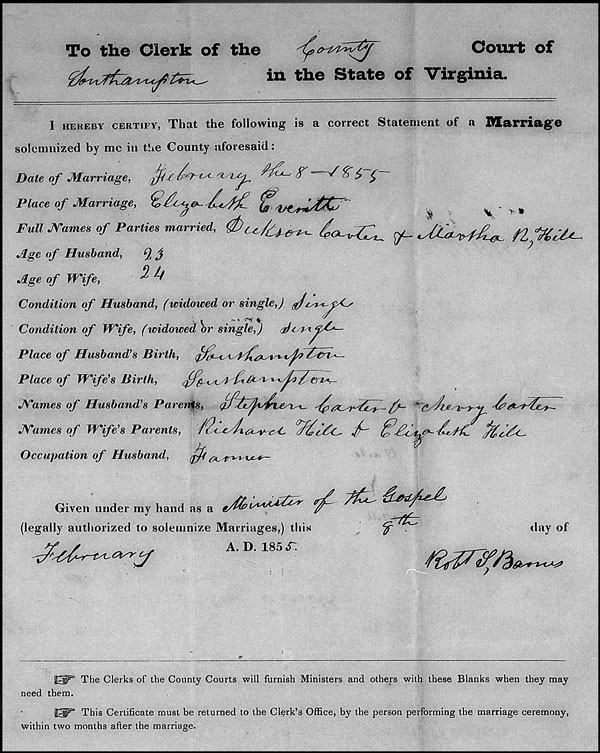 To the Clerk of the County Court of
Southampton in the State of Virginia.
I HEREBY CERTIFY, That the following is a correct Statement of a Marriage
solemnized by me in the County aforesaid:
Date of Marriage, February the 8 - 1855
Place of Marriage, Elizabeth Everitts
Full Names of Parties married, Dickson Carter & Martha R, Hill
Age of Husband, 23
Age of Wife, 24
Condition of Husband, (widowed or single,) Singl
Condition of Wife, (widowed or single,) single
Place of Husband's Birth, Southampton
Place of Wife's Birth, Southampton
Names of Husband's Parents, Stephen Carter & Cherry Carter
Names of Wife's Parents, Richard Hill & Elizabeth Hill
Occupation of Husband, Farmer
Given under my hand as a Minister of the Gospel
(legally authorized to solemnize Marriages,) this 8th day of
February A. D. 1855.
Robt S, Barnes
☞ The Clerks of the County Courts will furnish Ministers and others with these Blanks when they may
need them.
☞ This Certificate must be returned to the Clerk's Office, by the person performing the marriage ceremony,
within two months after the marriage.